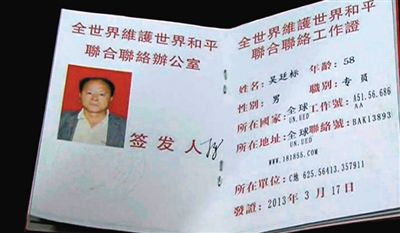 全世界維護世界和平
聯合聯絡辦公室
签发人
全世界維護世界和平
聯合聯絡工作證
姓名：吴廷标 年龄：58
性别：男 職别：专員
所在國家：全球工作號：A51.56.686
UN.UED AA
所在地址：全球聯絡號：BAK13893
UN.UED
www.181855.com
所在單位：C池 625.56413.357911
發證：2013年3月17日